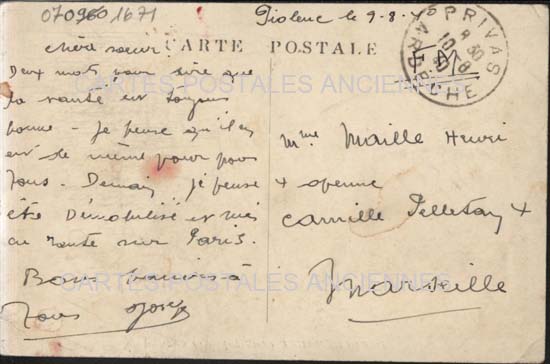 070960 1671
Piolenc le 9-8-
CARTE POSTALE
PRIVAS
8 30
10 - 8
ARDECHE
F. M
chère soeur
Deux mots pour dire que
la santé est toujours
bonne - Je pense qu'il en
est de même pour vous
Tous - Demain je pense
être Démobilisé et
en route sur Paris.
Bons baisers à
Tous Joseph
Mme Maille Henri
+ avenue
Camille Pelletan +
Marseille
CARTES POSTALES ANCIENNES
CARTES POSTALES ANCIENNES